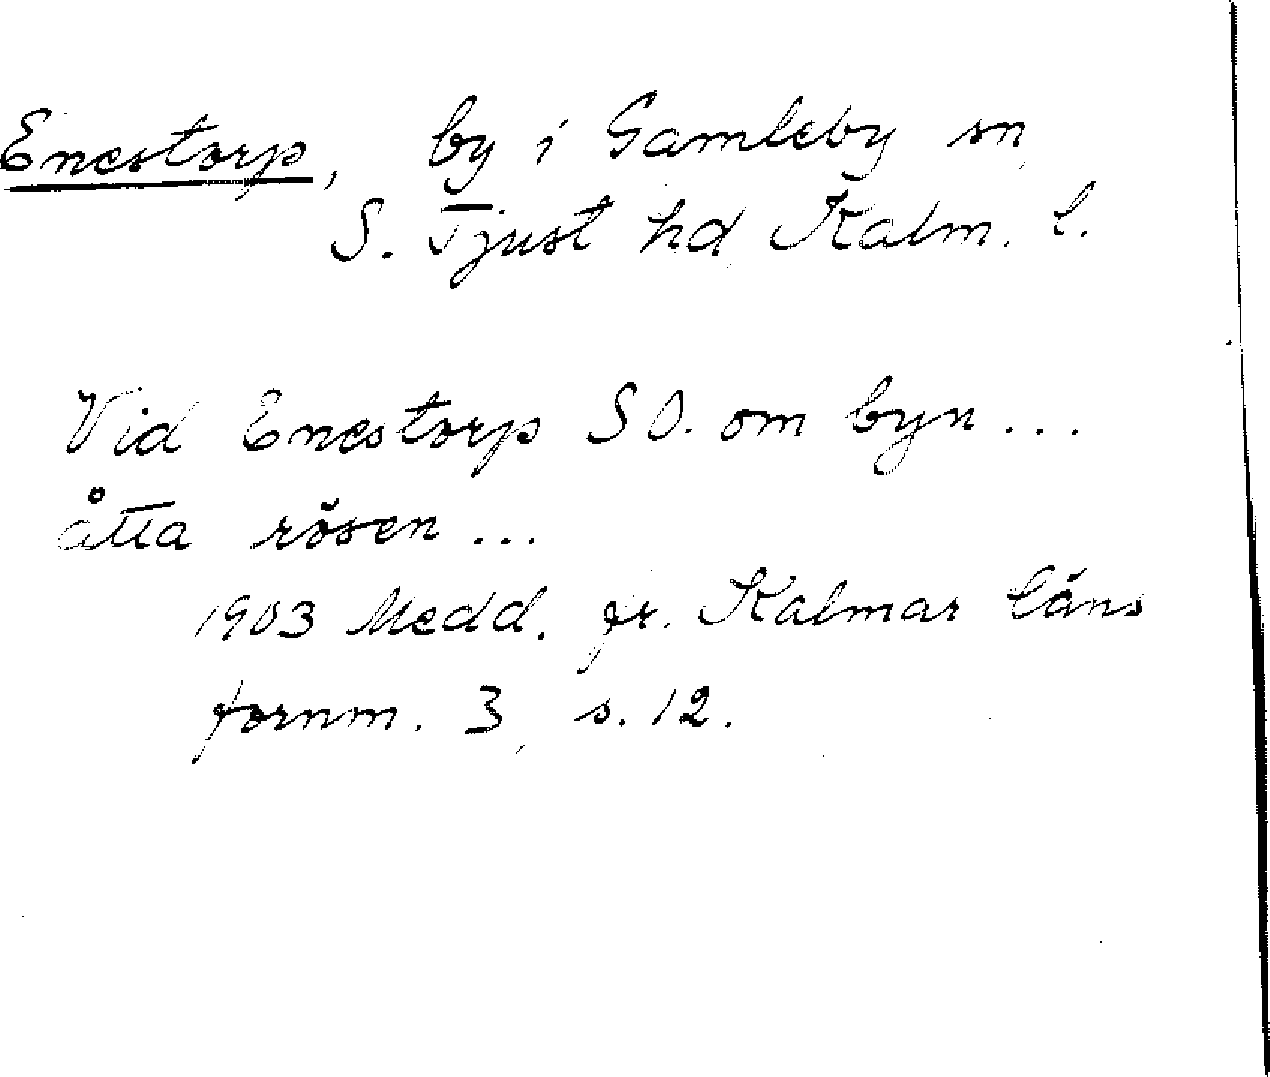 Enestorp, by i Gamleby sn,
S. Tjust hd, Kalm. l.
Vid Enestorp SO. om byn...
åtta rösen...
1903 Medd. fr. Kalmar läns
fornm. 3, s. 12.